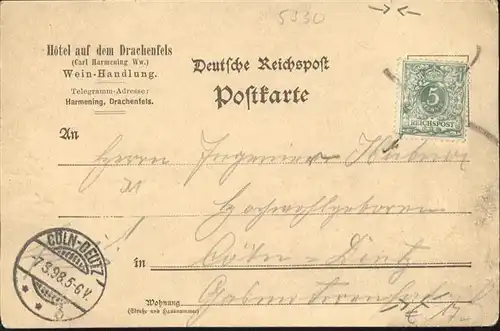 5330
Hôtel auf dem Drachenfels
(Carl Harmening Ww.)
Wein-Handlung.
Telegramm-Adresse:
Harmening, Drachenfels.
Deutsche Reichspost
Postkarte
5
REICHSPOST
An
Herrn Ingenieur
Hochwohlgeboren
in Cöln-Deutz
CÖLN-DEUTZ
7.3.98.5-6V.
Wohnung
(Straße und Hausnummer)